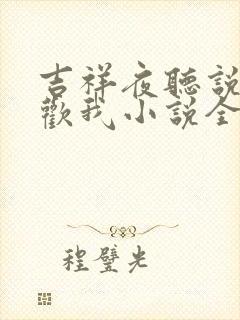 吉祥夜聽說
歡我小說全
程璧光